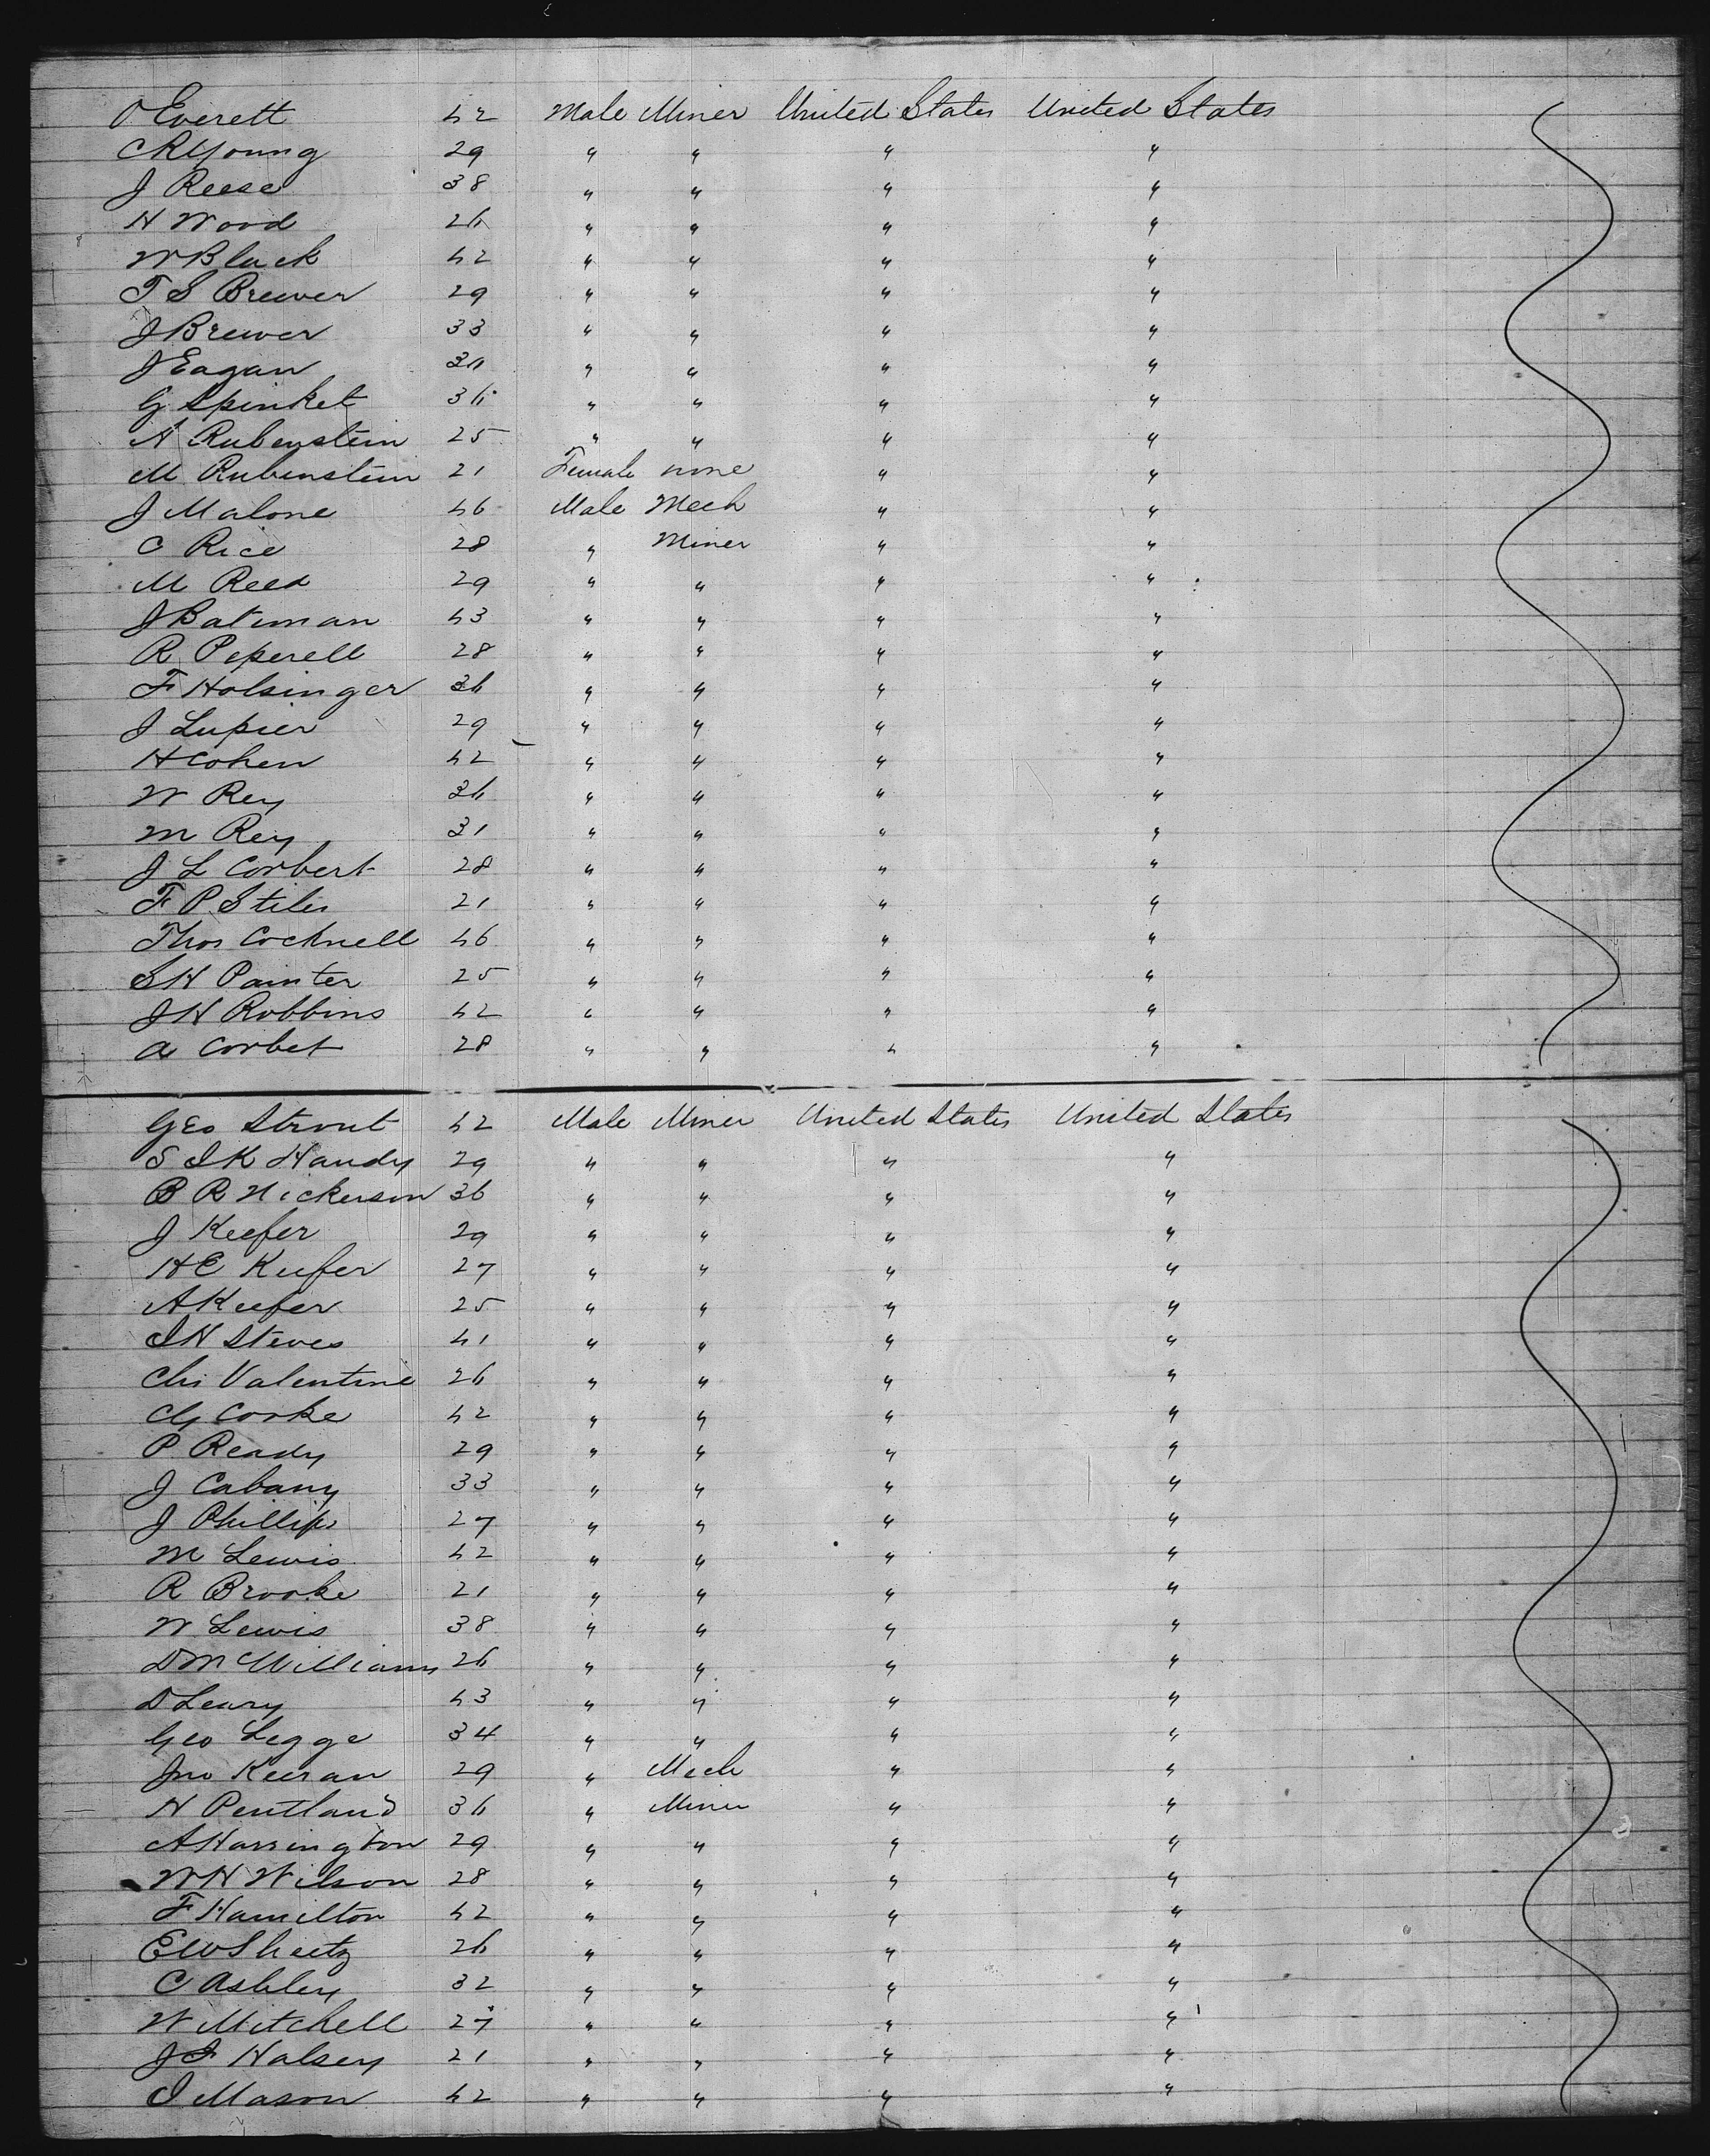 O Everett 42 Male Miner United States United States
C R Young 29 " " " "
J Reese 38 " " " "
H Wood 24 " " " "
W Black 42 " " " "
T S Brewer 29 " " " "
J Brewer 33 " " " "
J Eagan 30 " " " "
G Spinket 34 " " " "
A Rubenstein 25 " " " "
M Rubenstein 21 Female none " "
J Malone 46 Male Mech " "
C Rice 28 " Miner " "
M Reed 29 " " " "
J Bateman 43 " " " "
R Peperell 28 " " " "
F Holsinger 34 " " " "
J Lupier 29 " " " "
H Cohen 42 " " " "
W Rey 34 " " " "
M Rey 31 " " " "
J L Corbert 28 " " " "
F P Stiles 21 " " " "
Thos Cocknell 46 " " " "
S H Painter 25 " " " "
J H Robbins 42 " " " "
A Corbet 28 " " " "
Geo Strout 42 Male Miner United States United States
S I K Handy 29 " " " "
B R Nickerson 36 " " " "
J Keefer 29 " " " "
H E Keefer 27 " " " "
A Keefer 25 " " " "
I H Steves 41 " " " "
Chs Valentine 24 " " " "
G Cooke 42 " " " "
P Ready 29 " " " "
J Cabany 33 " " " "
J Phillips 27 " " " "
M Lewis 42 " " " "
R Brooke 21 " " " "
W Lewis 38 " " " "
D McWilliams 24 " " " "
D Leary 43 " " " "
Geo Legge 34 " " " "
Jno Keeran 29 " Mech " "
H Pentland 34 " Miner " "
A Harrington 29 " " " "
W H Wilson 28 " " " "
F Hamilton 42 " " " "
E W Sheetz 24 " " " "
C Ashley 32 " " " "
W Mitchell 27 " " " "
J F Halsey 21 " " " "
I Mason 42 " " " "